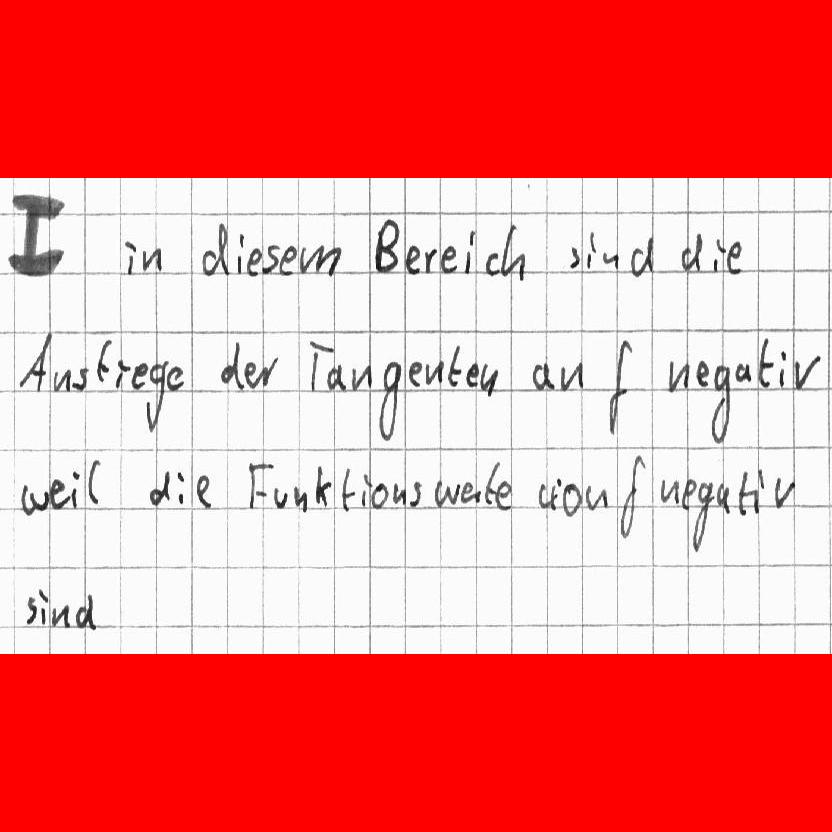 I in diesem Bereich sind die
Anstiege der Tangenten an f negativ
weil die Funktionswerte von f negativ
sind